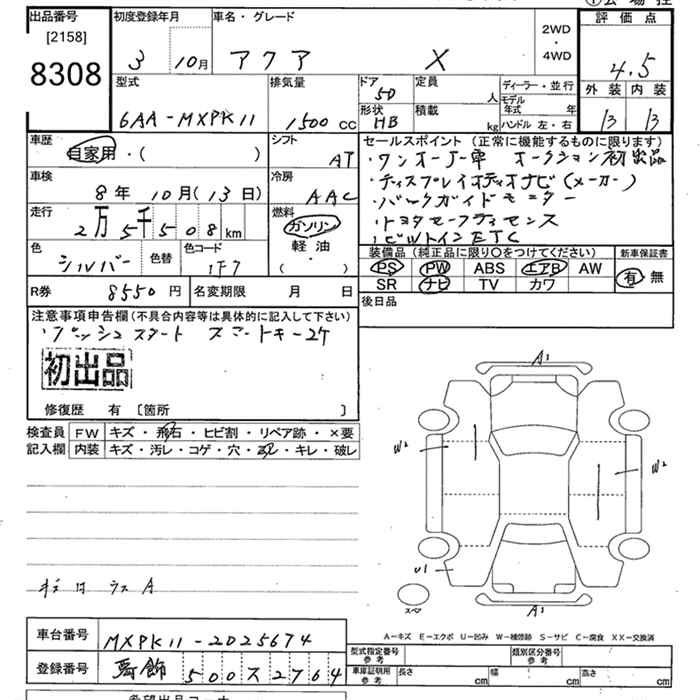 出品番号
[2158]
8308
初度登録年月
3 10月
車名・グレード
アクア X
2WD
・
4WD
評価点
4.5
外装 内装
B B
型式
6AA-MXPK11
排気量
1500 CC
ドア
5D
形状
HB
定員
人
積載
kg
ディーラー・並行
モデル年式 年
ハンドル 左・右
車歴
自家用・( )
シフト
AT
車検
8年 10月(13日)
冷房
AAC
走行
2万 5千 508 km
燃料
ガソリン
軽油
・( )
色
シルバー
色替
色コード
1F7
セールスポイント (正常に機能するものに限ります)
・ワンオーナー車 オークション初出品
・ディスプレイオーディオナビ(メーカー)
・バックガイドモニター
・トヨタセーフティセンス
・ビルトインETC
装備品 (純正品に限り○をつけてください)
PS PW ABS エアB AW
SR ナビ TV カワ
新車保証書
有・無
R券 8550円
名変期限 月 日
後日品
注意事項申告欄(不具合内容等は具体的に記入して下さい)
・プッシュスタート スマートキー2ケ
初出品
修復歴 有 〔箇所 〕
検査員
記入欄
FW キズ・飛石・ヒビ割・リペア跡・×要
内装 キズ・汚レ・コゲ・穴・スレ・キレ・破レ
A1
W2
W2
U1
A1
スペア
A-キズ E-エクボ U-凹み W-補修跡 S-サビ C-腐食 XX-交換済
車台番号 MXPK11-2025674
登録番号 500 ス 2764
型式指定番号
参考
類別区分番号
参考
車庫証明用
参考
長さ cm
幅 cm
高さ cm
希望出品コーナー